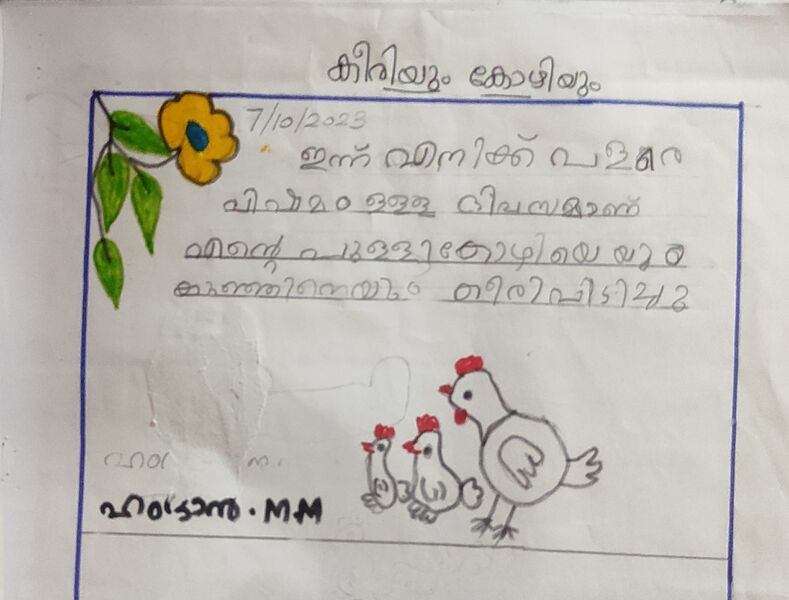 കീരിയും കോഴിയും
7/10/2023
ഇന്ന് എനിക്ക് വളരെ
വിഷമം ഉള്ള ദിവസമാണ്
എന്റെ പുള്ളികോഴിയെയും
കുഞ്ഞിനെയും കീരിപിടിച്ചു
MM